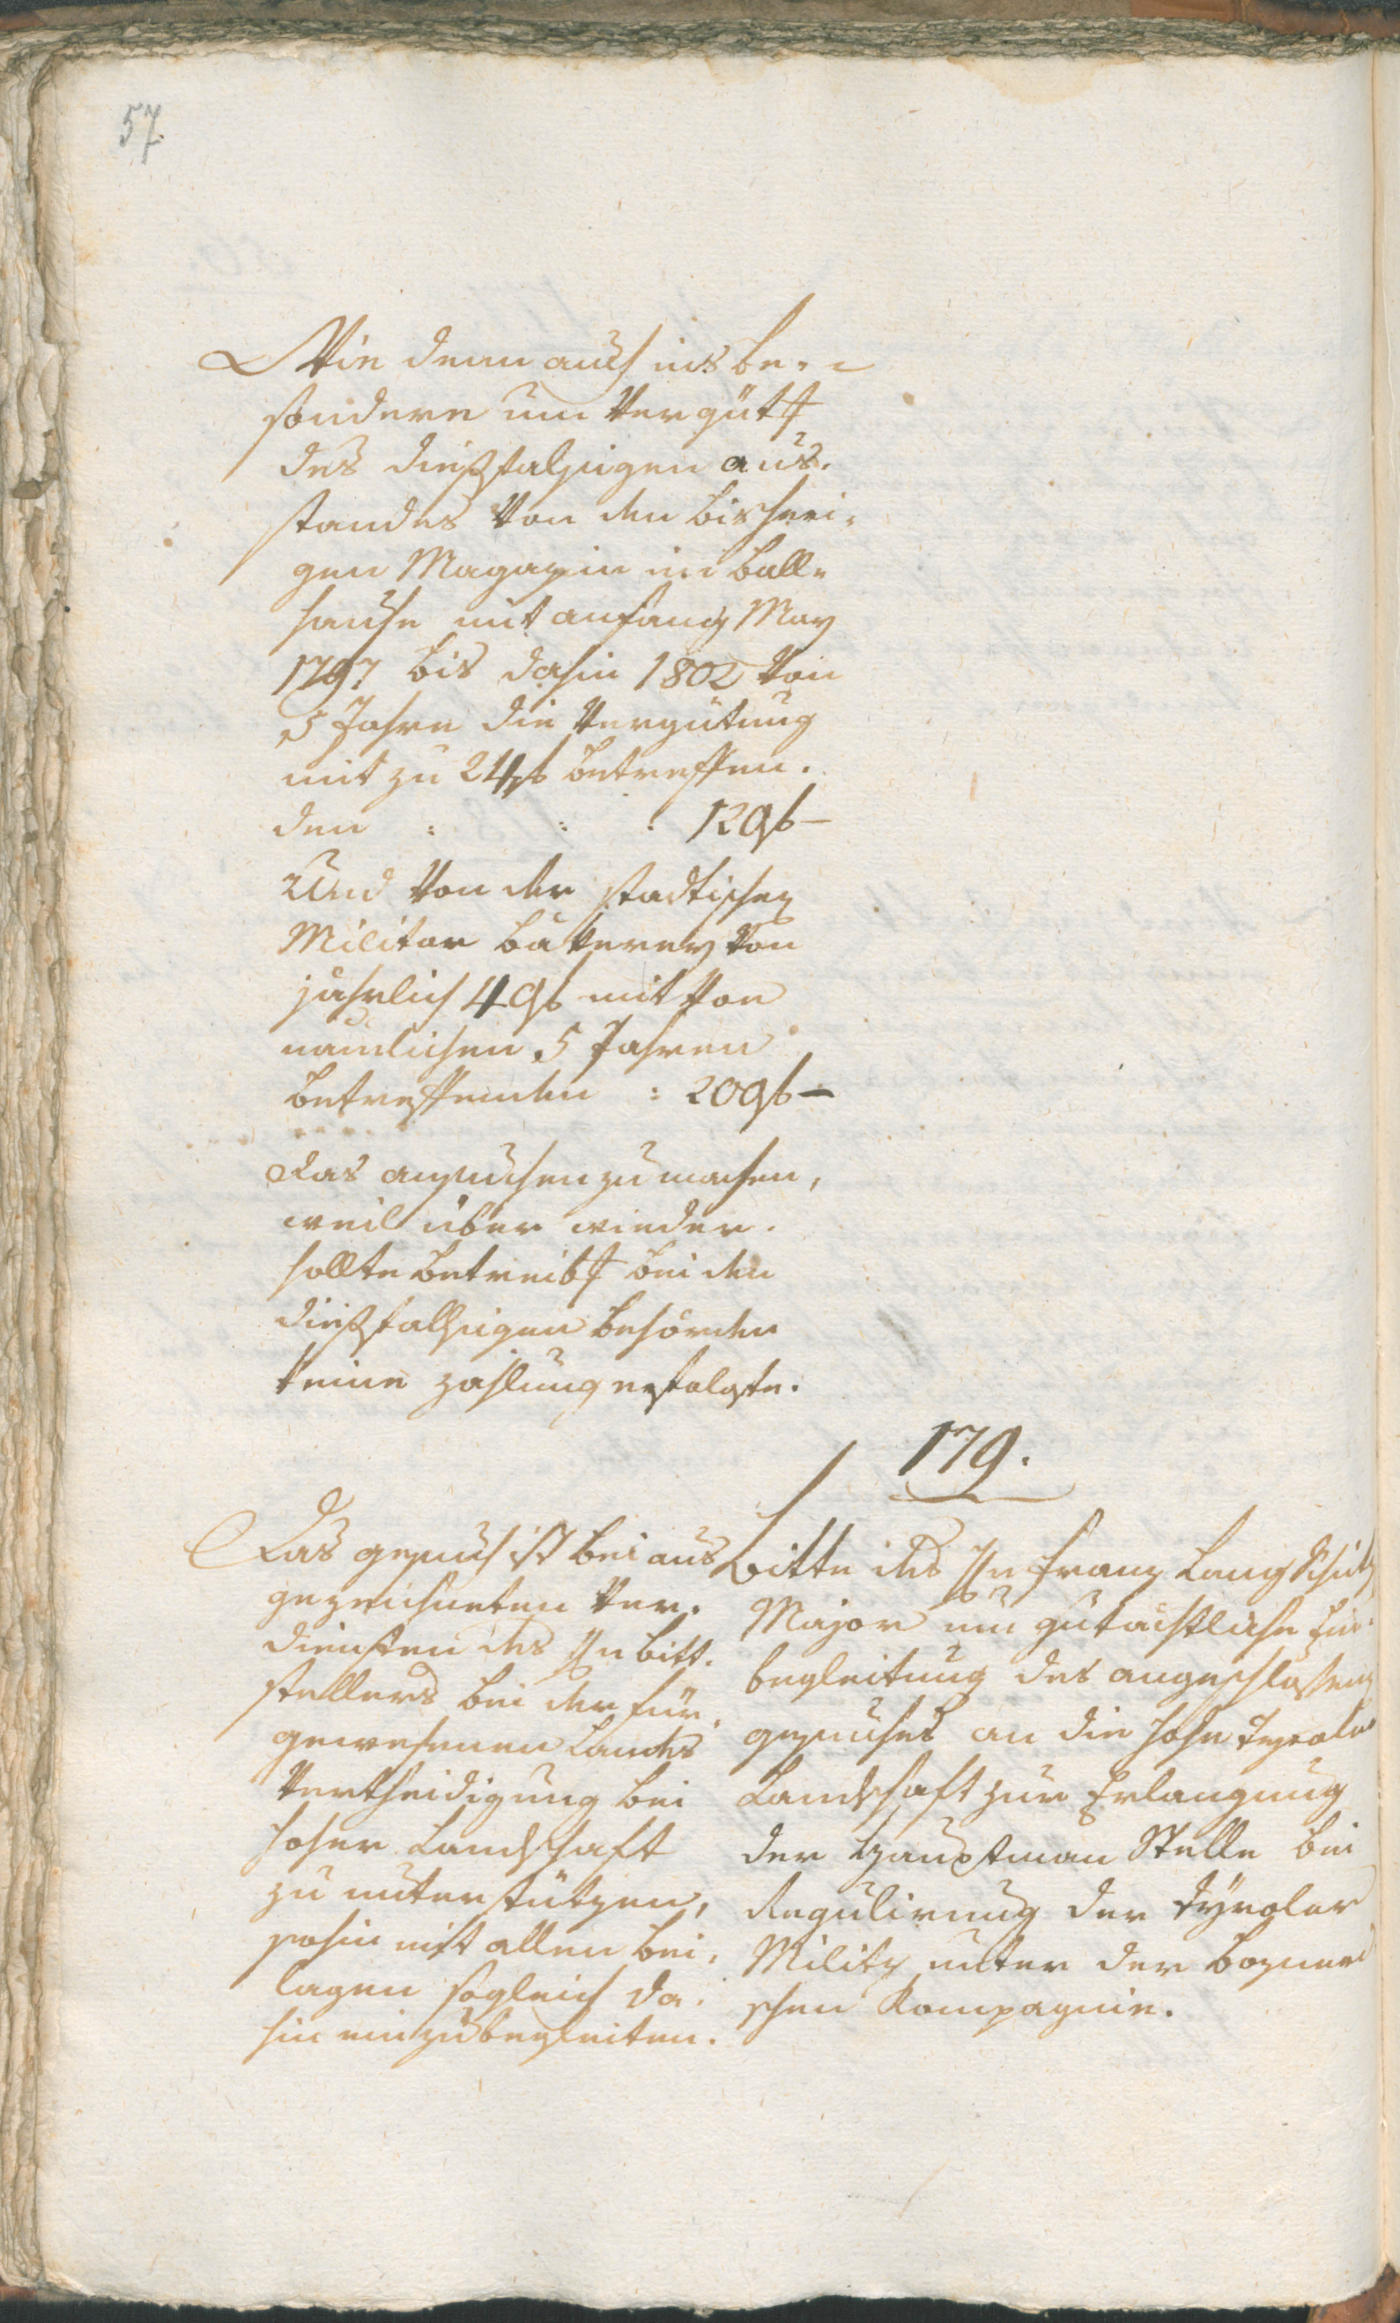 57.
Wie denn auch insbe-
sondere um Vergütt
des dießfalsigen aus-
standes von den bisheri-
gen Magazin im Ball-
hause mit anfang May
1797 bis dahin 1802 von
5 Jahre die Vergütung
mit zu 24 f betreffen-
den : : : 120 f —
Und von der stadtischen
Militar Bäkerey von
jährlich 40 f mit von
nämlichen 5 Jahren
betreffenden : 200 f —
das ansuchen zu machen,
weil über wieder-
hollte betreibt bei den
dießfalsigen behörden
keine zahlung erfolgte.
179.
Das gesuch ist bei aus
gezeichneten Ver-
diensten des Hn bitt-
stellers bei der für-
gewesenen Landes
Vertheidigung bei
hoher Landschaft
zu unterstützen,
sohin mit allen bei-
lagen sogleich da-
hin einzubegleiten.
Bitte des Hn Franz Lang Schütz
Major um gutächtliche Ein-
begleitung des angeschloßenen
gesuches an die hohe Tyroler
Landschaft zur Erlangung
der Hauptman Stelle bei
Regulirung der Tyroler
Militz unter der Bozneri
schen Kompagnie.